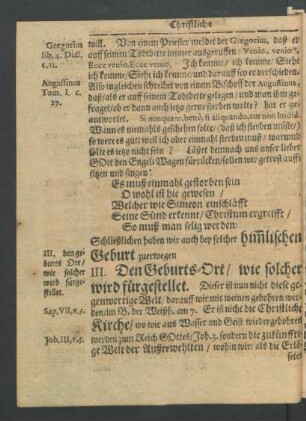 Christliche
Gregorius
lib. 4. Dial.
c. 11.
will. Von einem Priester meldet der Gregorius, daß er
auff seinem Todtbette immer außgeruffen: Venio, venio,
Ecce venio, Ecce venio. Ich komme/ ich komme/ Siehe
ich komme/ Siehe ich komme/ und darauff sey er verschieden.
Augustinus
Tom. I. c.
27.
Also ingleichen schreibet von einem Bischoff der Augustinus,
daß/ als er auff seinem Todtebette gelegen/ und man ihn ge-
fraget/ ob er dann auch itzo gerne sterben wolte? hat er ge-
antwortet. Si nunquam, benè, si aliquando, cur non hodiè?
Wenn es niemahls geschehen solte/ (daß ich sterben müste/)
so were es gut: weil ich aber einmahl sterben muß/ worumb
solte es ietzo nicht sein? Lässet demnach uns unser lieber
GOtt den Engels Wagen fürrücken/ sollen wir getrost auffsi-
tzen und singen:
Es muß einmahl gestorben sein
O wohl ist hie gewesen/
Welcher wie Simeon einschläfft
Seine Sünd erkennt/ Christum ergreifft/
So muß man selig werden:
Schließlichen haben wir auch bey solcher himlischen
Geburt zuerwegen
III. den ge-
burts Ort/
wie solcher
wird fürge-
stellet.
III. Den Geburts-Ort/ wie solcher
wird fürgestellet. Dieser ist nun nicht diese ge-
genwertige Welt/ darauff wir mit weinen gebohren wer-
Sap. VII, v. 3.
den/ im B. der Weißh. am 7. Er ist nicht die Christliche
Kirche/ wo wir aus Wasser und Geist wiedergebohren
Joh. III, v. 5.
werden zum Reich GOttes/ Joh. 3. sondern die zukünfti-
ge Welt der Außerwehlten/ wohin wir/ als die Erlö-
seten